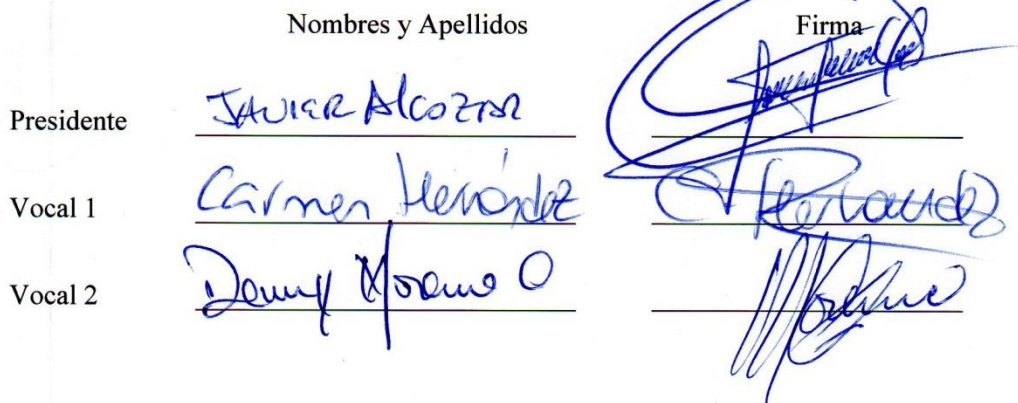 Nombres y Apellidos Firma
Presidente JAVIER AlcozAR
Vocal 1 Carmen Hernández Hernandez
Vocal 2 Denny Moreno O Moreno